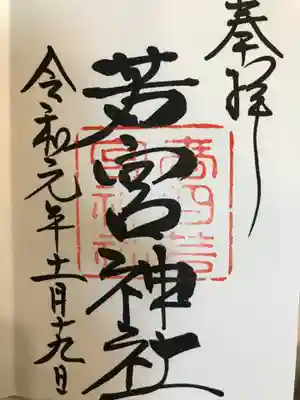 奉拝
若宮神社
令和元年十二月十九日